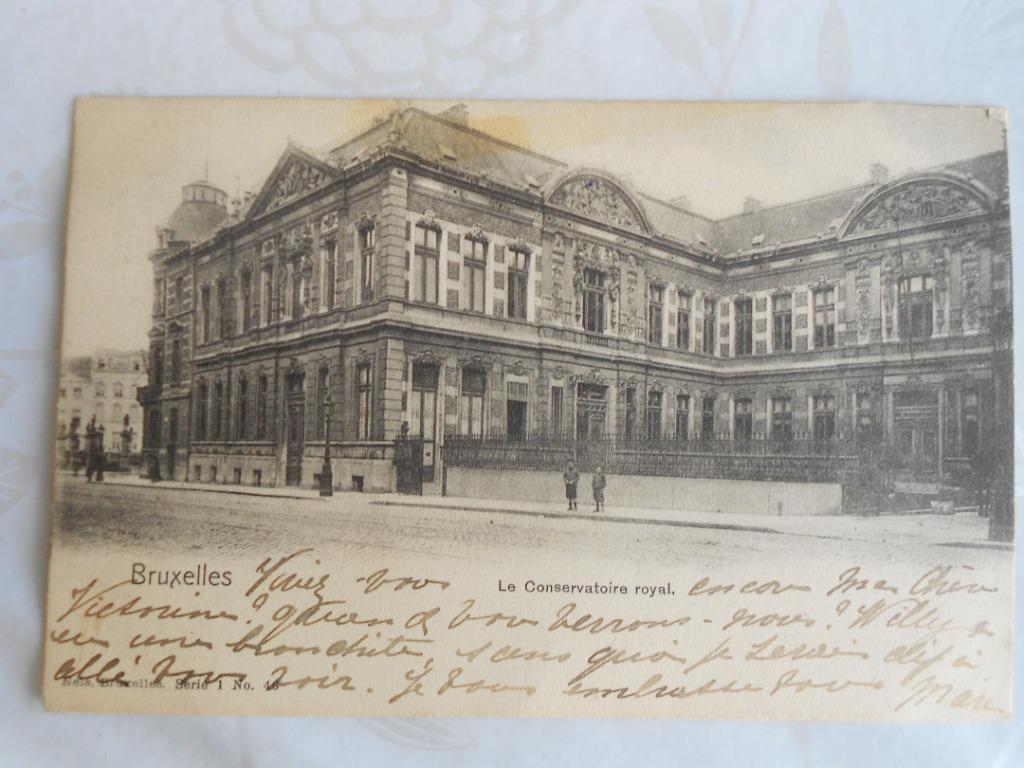 Bruxelles Vivez-vous Le Conservatoire royal. encore Ma Chère
Victorine? quand vous verrons-nous? Willy a
eu une bronchite, sans quoi je serais déjà
allé vous voir. Je vous embrasse tous
Nels, Bruxelles. Série 1 No. 46